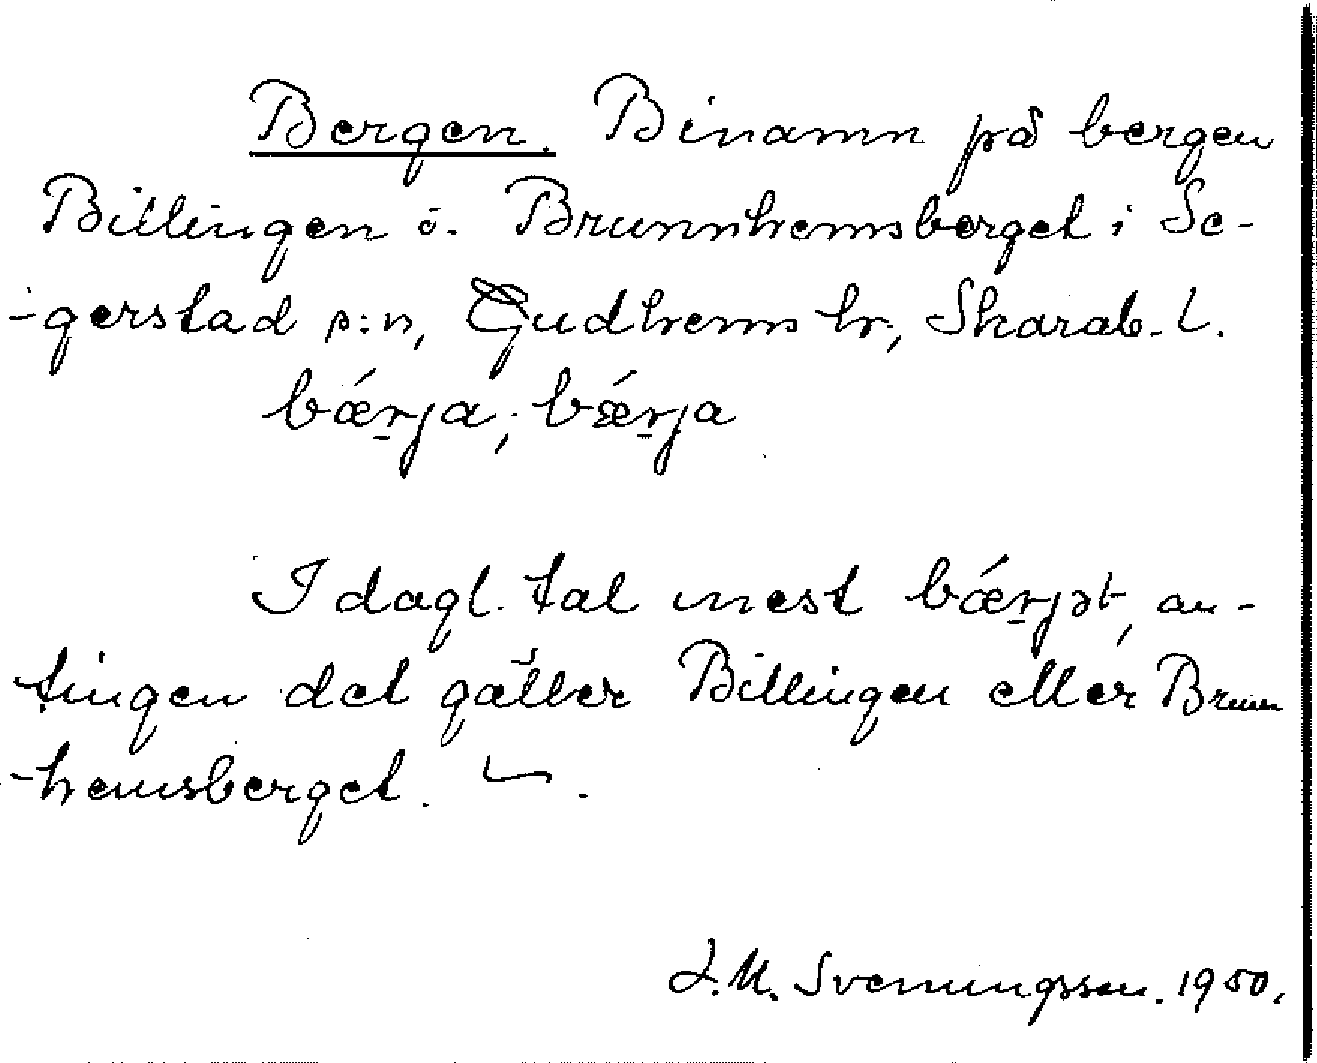 Bergen. Binamn på bergen
Billingen o. Brunnhemsberget i Se-
-gerstad s:n, Gudhems hr, Skarab. l.
bǽrja, bǽrja
I dagl. tal mest bǽrjət, an-
tingen det gäller Billingen eller Brunn
-hemsberget. –.
J. M. Svenningsson. 1950.